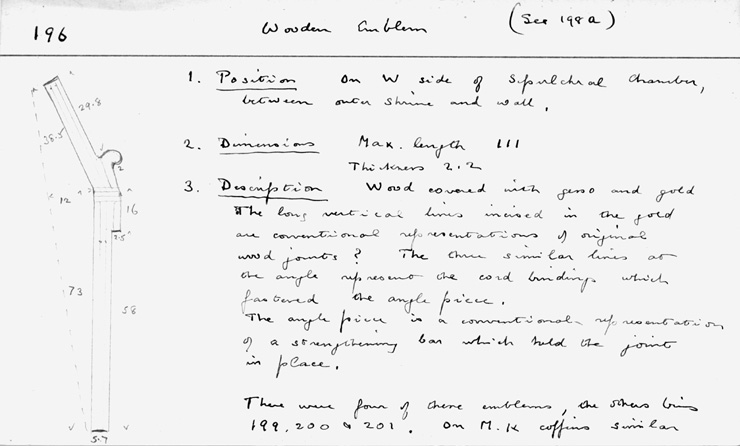 196
Wooden Emblem
(See 198a)
1. Position On W side of Sepulchral Chamber,
between outer shrine and wall.
2. Dimensions Max. length 111
Thickness 2.2
3. Description Wood covered with gesso and gold
The long vertical lines incised in the gold
are conventional representations of original
wood joints? The three similar lines at
the angle represent the cord bindings which
fastened the angle piece.
The angle piece is a conventional representation
of a strengthening bar which held the joint
in place.
There were four of these emblems, the others being
199, 200 & 201. On M.K coffins similar
29.8
38.5
2
12
16
2.5
73
58
5.7